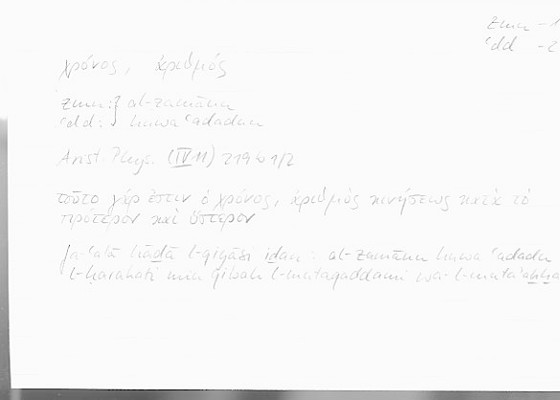 zmn - 1
ʿdd - 2
χρόνος, ἀριθμός
zmn: } al-zamānu
ʿdd: } huwa ʿadadun
Arist. Phys. (IV 11) 219 b 1/2
τοῦτο γάρ ἐστιν ὁ χρόνος, ἀριθμὸς κινήσεως κατὰ τὸ
πρότερον καὶ ὕστερον
fa-ʿalā hāḏā l-qiyāsi iḏan : al-zamānu huwa ʿadadu
l-ḥarakati min qibali l-mutaqaddimi wa-l-mutaʾaḫḫi